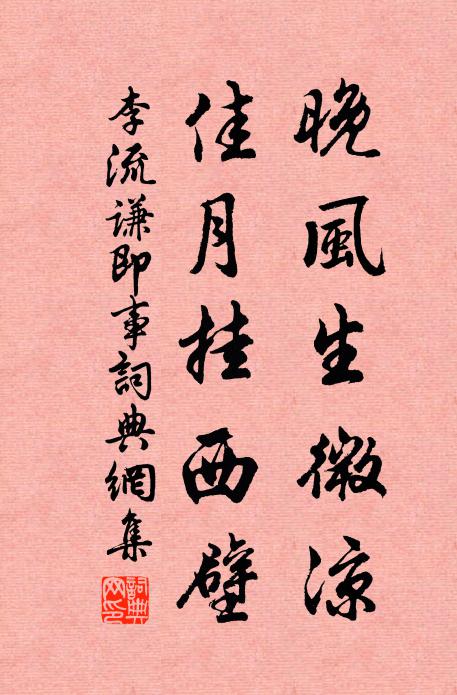 晚風生微涼
佳月挂西壁
李流謙即事詞典網集
詞典網印